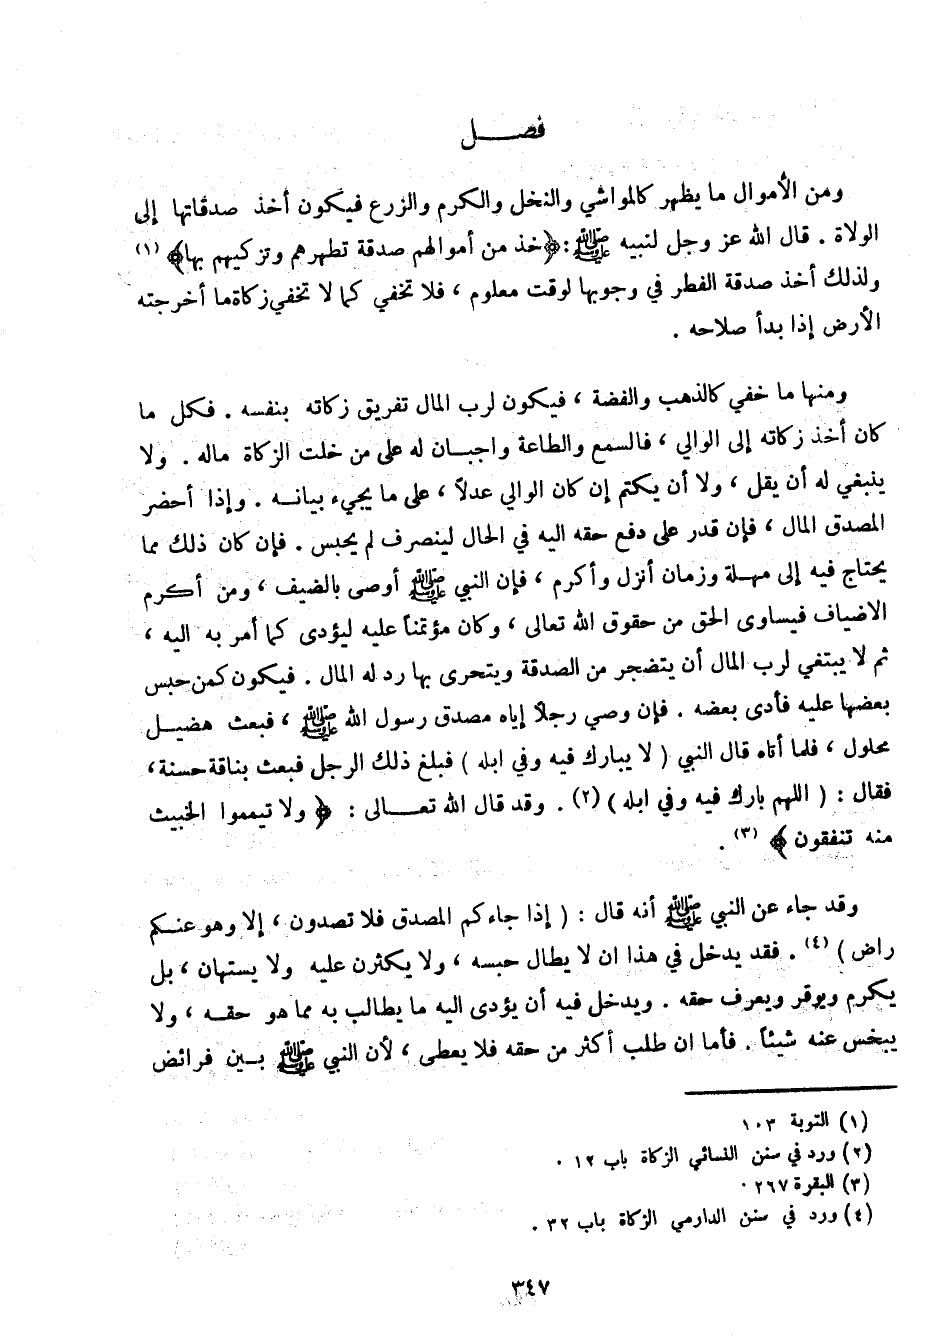 فصــــل
ومن الأموال ما يظهر كالمواشي والنخل والكرم والزرع فيكون أخذ صدقاتها إلى
الولاة . قال الله عز وجل لنبيه ﷺ : ﴿خذ من أموالهم صدقة تطهرهم وتزكيهم بها﴾ (١)
ولذلك أخذ صدقة الفطر في وجوبها لوقت معلوم ، فلا تخفي كما لا تخفي زكاة ما أخرجته
الأرض إذا بدأ صلاحه .
ومنها ما خفي كالذهب والفضة ، فيكون لرب المال تفريق زكاته بنفسه . فكل ما
كان أخذ زكاته إلى الوالي ، فالسمع والطاعة واجبــان له على من خلت الزكاة ماله . ولا
ينبغي له أن يقل ، ولا أن يكتم إن كان الوالي عدلاً ، على ما يجيء بيانــه . وإذا أحضر
المصدق المال ، فإن قدر على دفع حقه اليه في الحال لينصرف لم يحبس . فإن كان ذلك مما
يحتاج فيه إلى مهـلة وزمان أنزل وأكرم ، فإن النبي ﷺ أوصى بالضيف ، ومن أكـرم
الاضياف فيساوى الحق من حقوق الله تعالى ، وكان مؤتمناً عليه ليؤدى كما أمر به اليه ،
ثم لا يبتغي لرب المال أن يتضجر من الصدقة ويتحرى بها رد له المال . فيكون كمن حبس
بعضها عليه فأدى بعضه . فإن وصي رجلاً إياه مصدق رسول الله ﷺ ، فبعث هضيـل
محلول ، فلما أتاه قال النبي ( لا يبارك فيه وفي ابله ) فبلغ ذلك الرجل فبعث بناقة حسنة ،
فقال : ( اللهم بارك فيه وفي ابله ) (٢) . وقد قال الله تعــــالى : ﴿ ولا تيمموا الخبيث
منه تنفقون ﴾ (٣) .
وقد جاء عن النبي ﷺ أنه قال : ( إذا جاءكم المصدق فلا تصدون ، إلا وهو عنـكم
راض ) (٤) . فقد يدخل في هذا ان لا يطال حبسه ، ولا يكثرن عليه ولا يستهان ، بل
يكرم ويوقر ويعرف حقه . ويدخل فيه أن يؤدى اليه ما يطالب به مما هو حقــه ، ولا
يبخس عنه شيئاً . فأما ان طلب أكثر من حقه فلا يعطى ، لأن النبي ﷺ بــين فرائض
(١) التوبة ١٠٣
(٢) ورد في سنن النسائي الزكاة باب ١٢ .
(٣) البقرة ٢٦٧ .
(٤) ورد في سنن الدارمي الزكاة باب ٣٢ .
٣٤٧